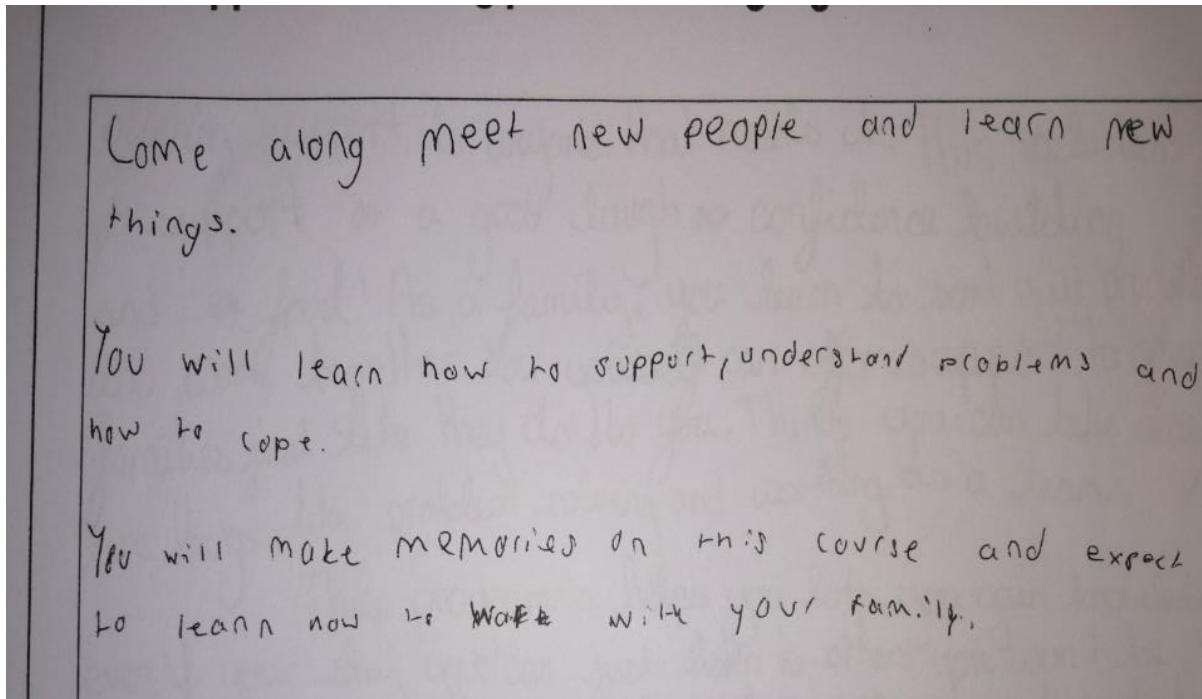 Come along meet new people and learn new
things.
You will learn how to support, understand problems and
how to cope.
You will make memories on this course and expect
to learn how to work with your family.